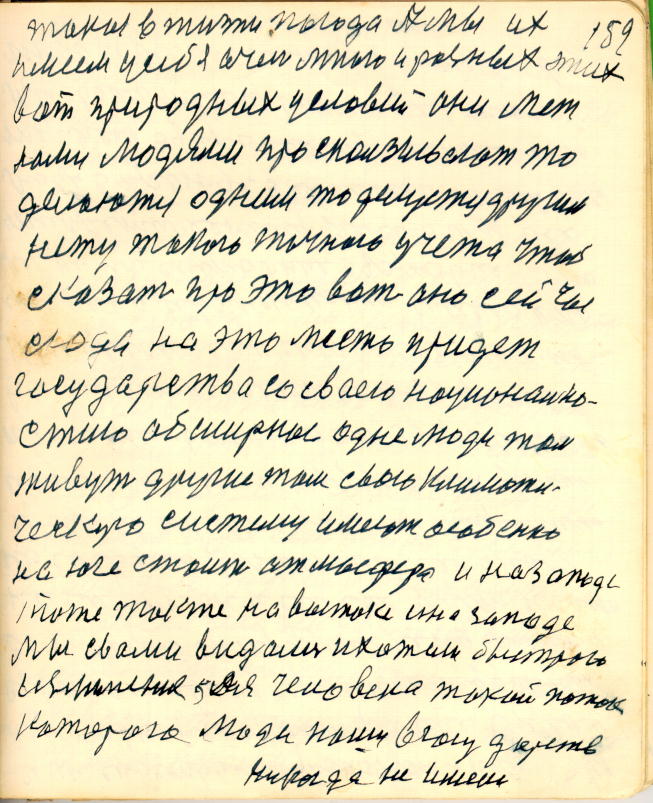 такое в жизни погода А мы их 159
имеем у себя очен много и разных этих
вот природных условий они мет
лами людями про
делаются одним то делу другим
нету такого точного учета чтоб
сказат про это вот оно сей час
сюда на это место придет
государства со сваею национално-
стию обширное одне люди там
живут другие там свою климати-
ческую систему имеют особенно
на юге стоит атмосфера и на западе
тоже также на востоке и на западе
мы свами видали и хотели быстрого
для человека такой
которого люди наши в государств
никогда не имели